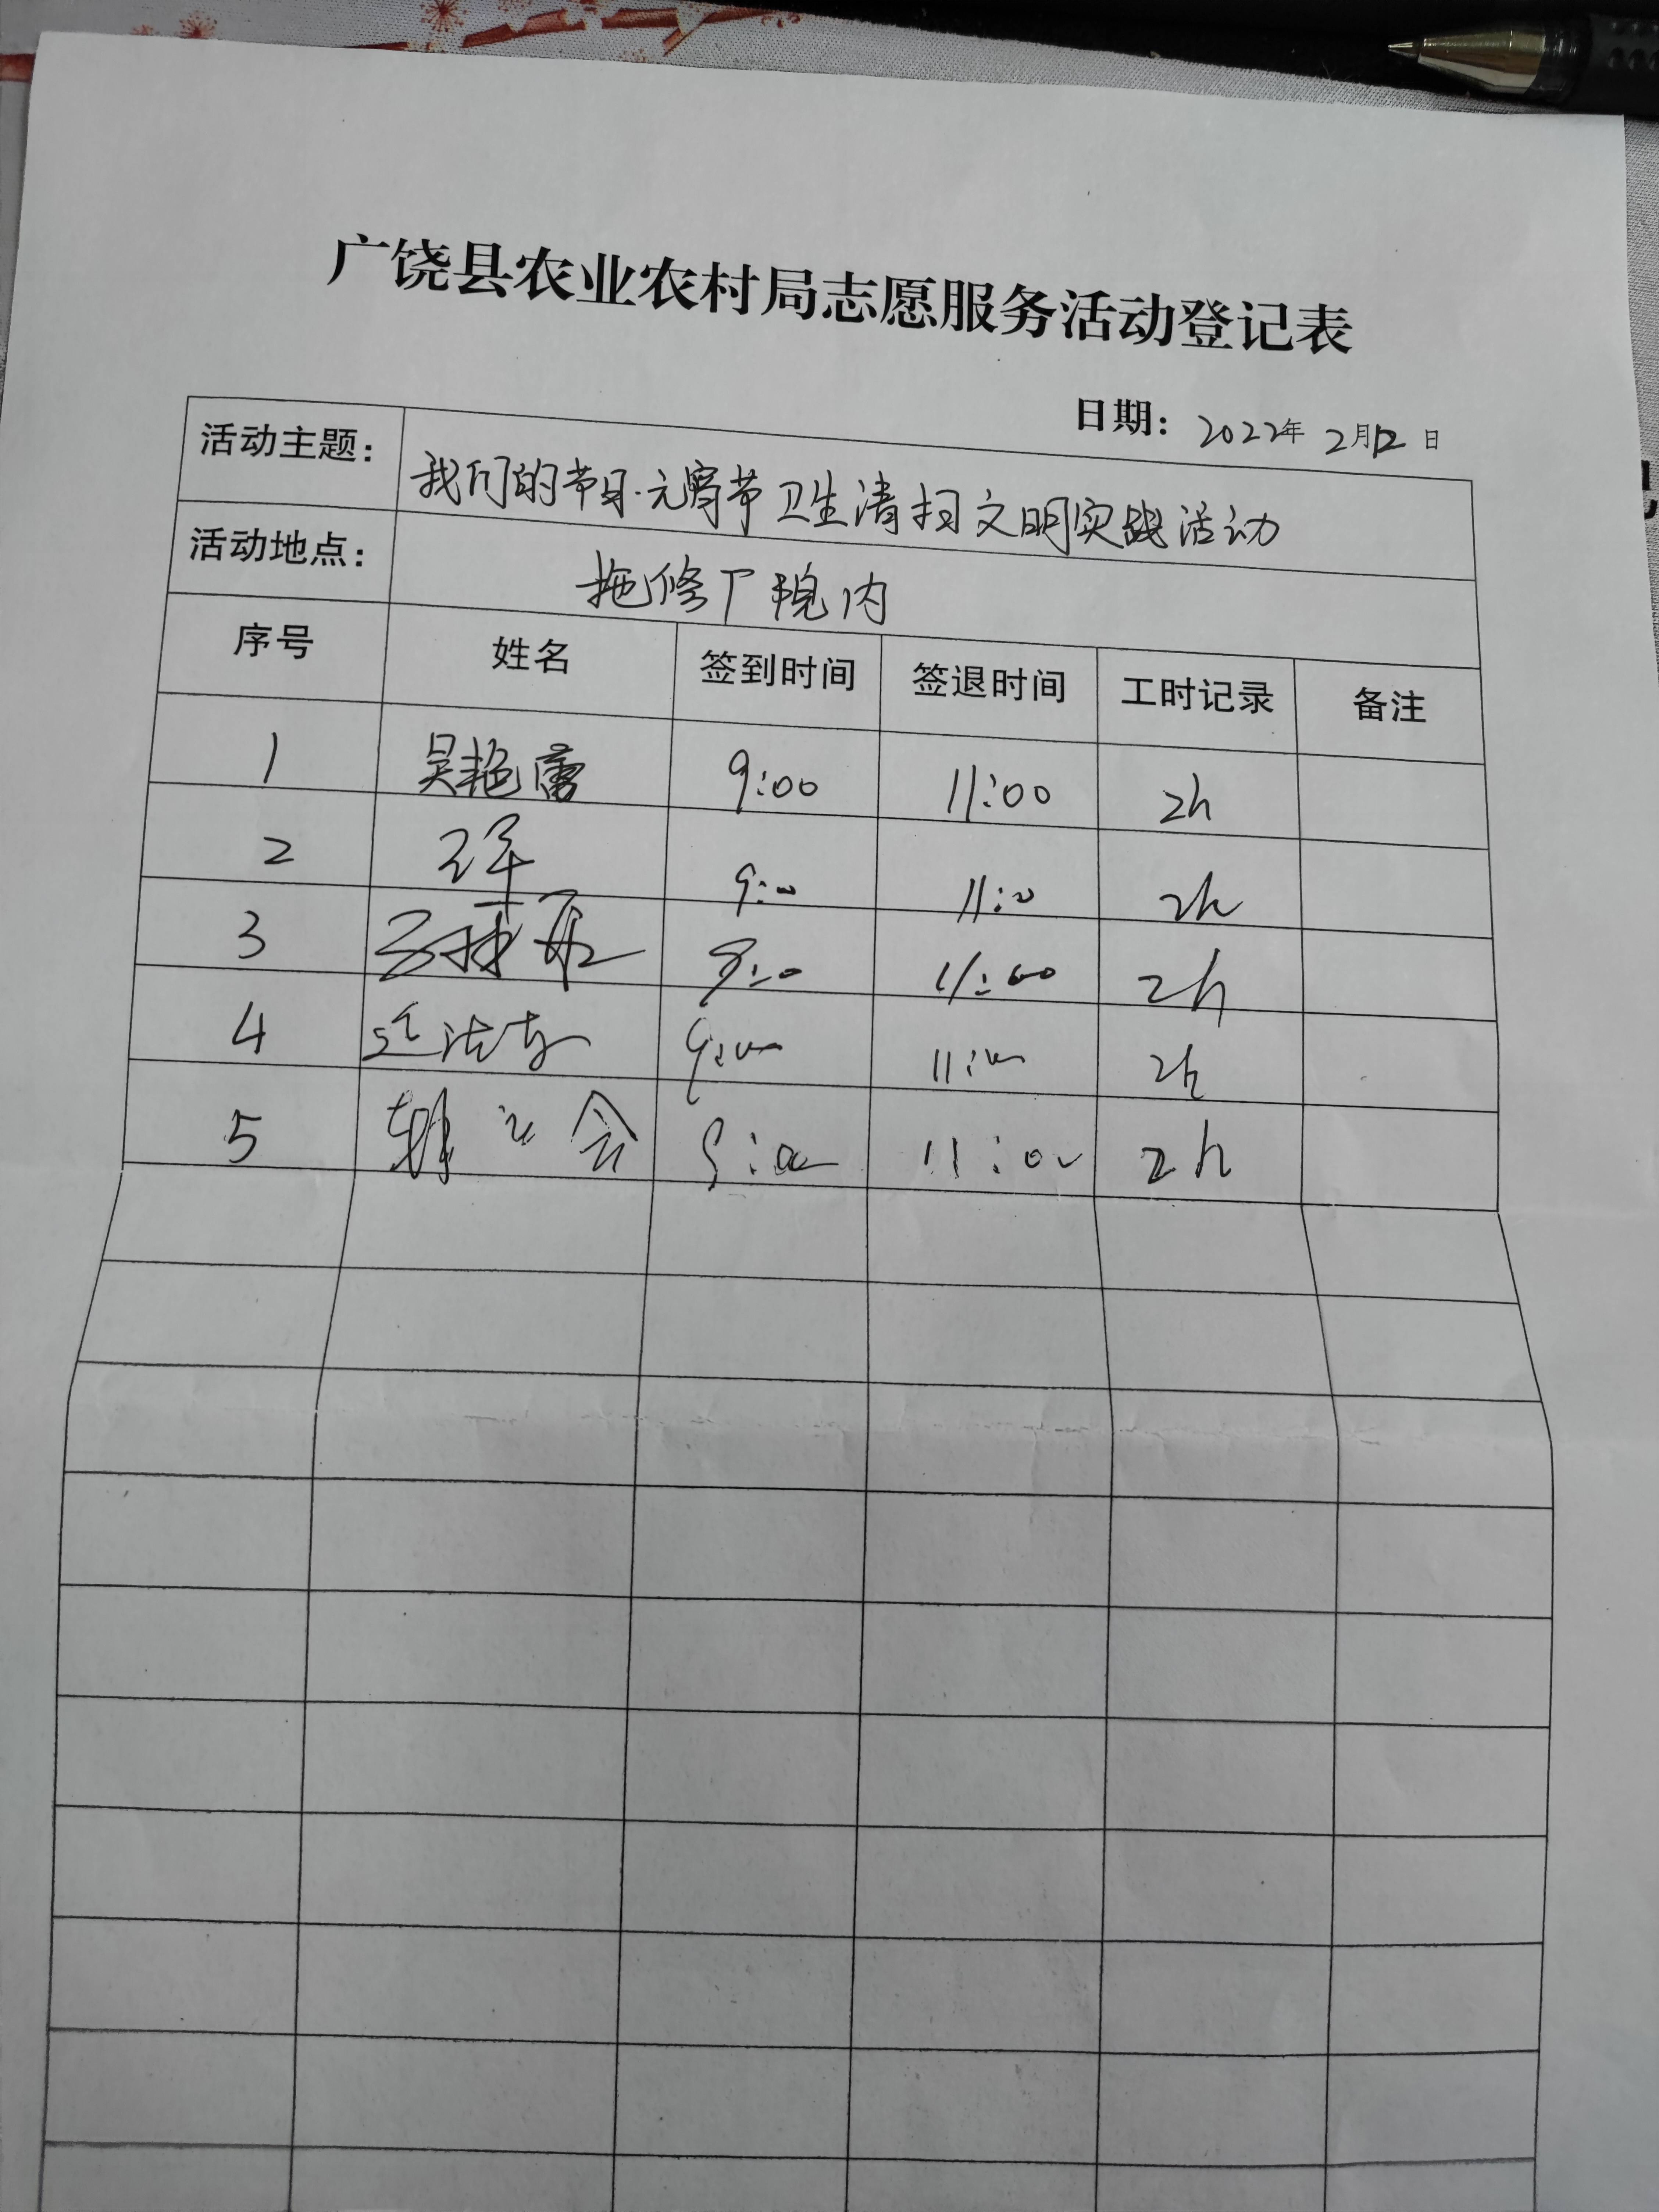 广饶县农业农村局志愿服务活动登记表
日期：2022年 2月12日
活动主题： 我们的节日·元宵节卫生清扫文明实践活动
活动地点： 拖修厂院内
序号 姓名 签到时间 签退时间 工时记录 备注
1 吴艳 9:00 11:00 2h
2 9:00 11:00 2h
3 9:00 11:00 2h
4 9:00 11:00 2h
5 会 9:00 11:00 2h